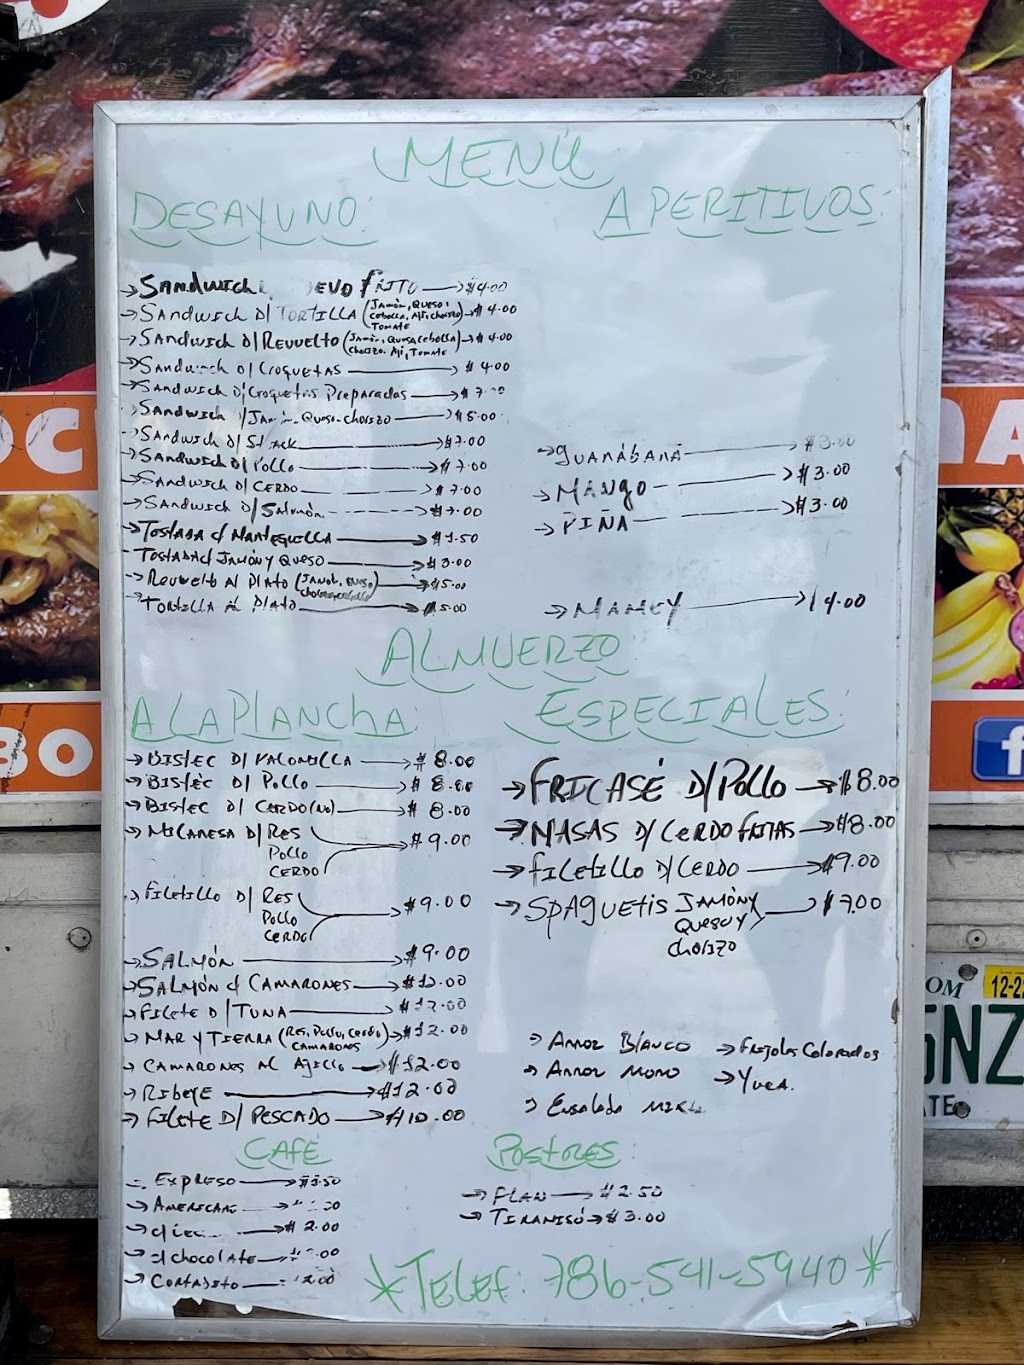 MENÚ
DESAYUNO:
APERITIVOS:
→ SANDWICH EVO FRITO → $4.00
→ SANDWICH D/ TORTILLA (JAMÓN, QUESO, CEBOLLA, AJI, CHORIZO → $4.00
TOMATE
→ SANDWICH D/ REVUELTO (JAMÓN, QUESO, CEBOLLA) → $4.00
CHORIZO, AJI, TOMATE
→ SANDWICH D/ CROQUETAS → $4.00
→ SANDWICH D/ CROQUETAS PREPARADAS → $7.00
→ SANDWICH /JAMÓN QUESO-CHORIZO → $5.00
→ SANDWICH D/ → $7.00
→ SANDWICH D/ POLLO → $7.00
→ SANDWICH D/ CERDO → $7.00
→ SANDWICH D/ SALMÓN → $7.00
→ TOSTADA C/ MANTEQUILLA → $1.50
TOSTADA C/ JAMÓN Y QUESO → $3.00
→ REVUELTO AL PLATO (JAMÓN, QUESO → $5.00
→ TORTILLA AL PLATO → $5.00
→ GUANÁBANA → $3.00
→ MANGO → $3.00
→ PIÑA → $3.00
→ MAMEY → $4.00
ALMUERZO
A LA PLANCHA:
→ BISTEC D/ PALOMILLA → $8.00
→ BISTEC D/ POLLO → $8.00
→ BISTEC D/ CERDO (NO) → $8.00
→ MILANESA D/ RES → $9.00
POLLO
CERDO
→ FILETILLO D/ RES → $9.00
POLLO
CERDO
→ SALMÓN → $9.00
→ SALMÓN C/ CAMARONES → $12.00
→ FILETE D/ TUNA → $12.00
→ MAR Y TIERRA (RES, POLLO, CERDO → $12.00
CAMARONES
→ CAMARONES AL AJILLO → $12.00
→ RIBEYE → $12.00
→ FILETE D/ PESCADO → $10.00
ESPECIALES:
→ FRICASÉ D/ POLLO → $8.00
→ MASAS D/ CERDO FRITAS → $8.00
→ FILETILLO D/ CERDO → $9.00
→ SPAGUETIS JAMÓN Y → $7.00
QUESO Y
CHORIZO
→ ARROZ BLANCO → FRIJOLES COLORADOS
→ ARROZ MORO → YUCA.
→ ENSALADA MIXTA
CAFÉ
EXPRESO
AMERICANO
C/ → $2.00
CHOCOLATE
→ CORTADITO
POSTRES:
→ FLAN → $2.50
→ TIRAMISÚ → $3.00
*TELEF: 786-541-5940*
OC
NA
30
f
OM 12-22
5NZ
ATE